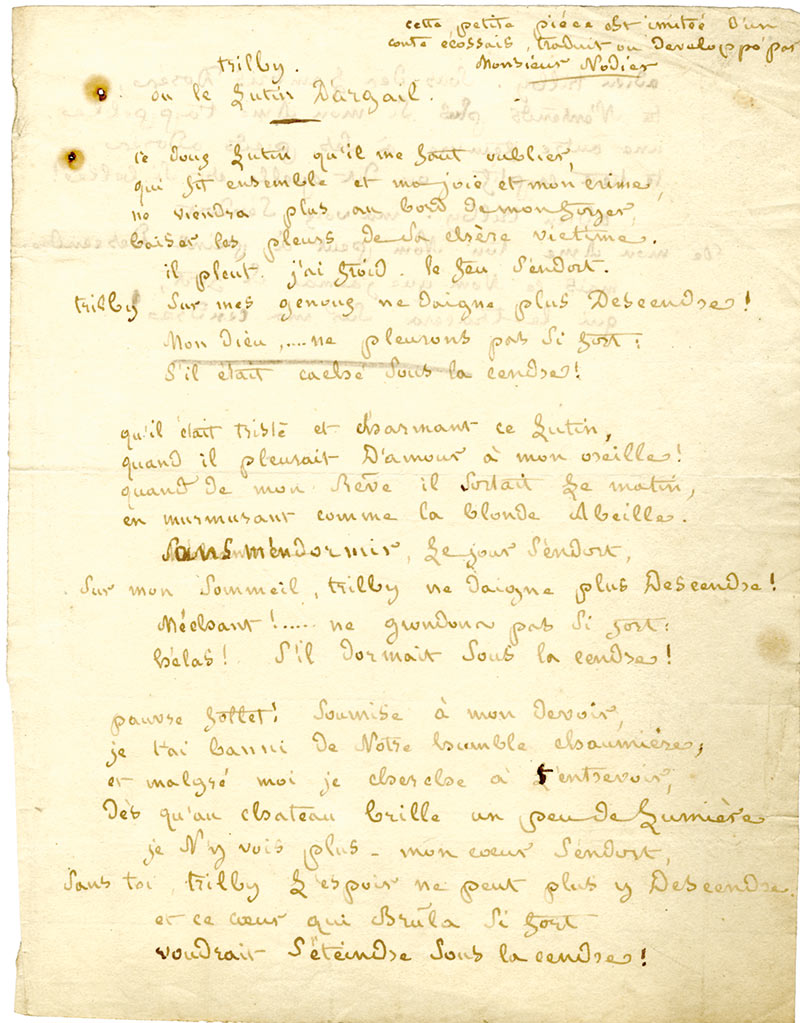 cette petite pièce est imitée d'un
conte écossais, traduit ou developpé par
Monsieur Nodier
trilby.
ou le Lutin D'argail.
ce doux Lutin qu'il me faut oublier,
qui fit ensemble et ma joie et mon crime,
ne viendra plus au bord de mon foyer,
baiser les pleurs de sa chère victime.
il pleut. j'ai froid. le feu s'endort.
trilby sur mes genoux ne daigne plus Descendre !
Mon dieu ,.... ne pleurons pas si fort :
s'il était caché sous la cendre !
qu'il était triste et charmant ce Lutin,
quand il pleurait D'amour à mon oreille !
quand de mon Rêve il sortait Le matin,
en murmurant comme la blonde Abeille.
sans m'endormir, Le jour s'endort,
sur mon sommeil, trilby ne daigne plus Descendre !
Méchant !..... ne grondons pas si fort :
hélas ! s'il dormait sous la cendre !
pauvre follet ! soumise à mon devoir,
je t'ai banni de Notre humble chaumière,
et malgré moi je cherche à t'entrevoir,
Dès qu'au chateau brille un peu de Lumière
je N'y vois plus - mon cœur s'endort,
sans toi, trilby L'espoir ne peut plus y Descendre.
et ce cœur qui Brûla si fort
voudrait s'éteindre sous la cendre !